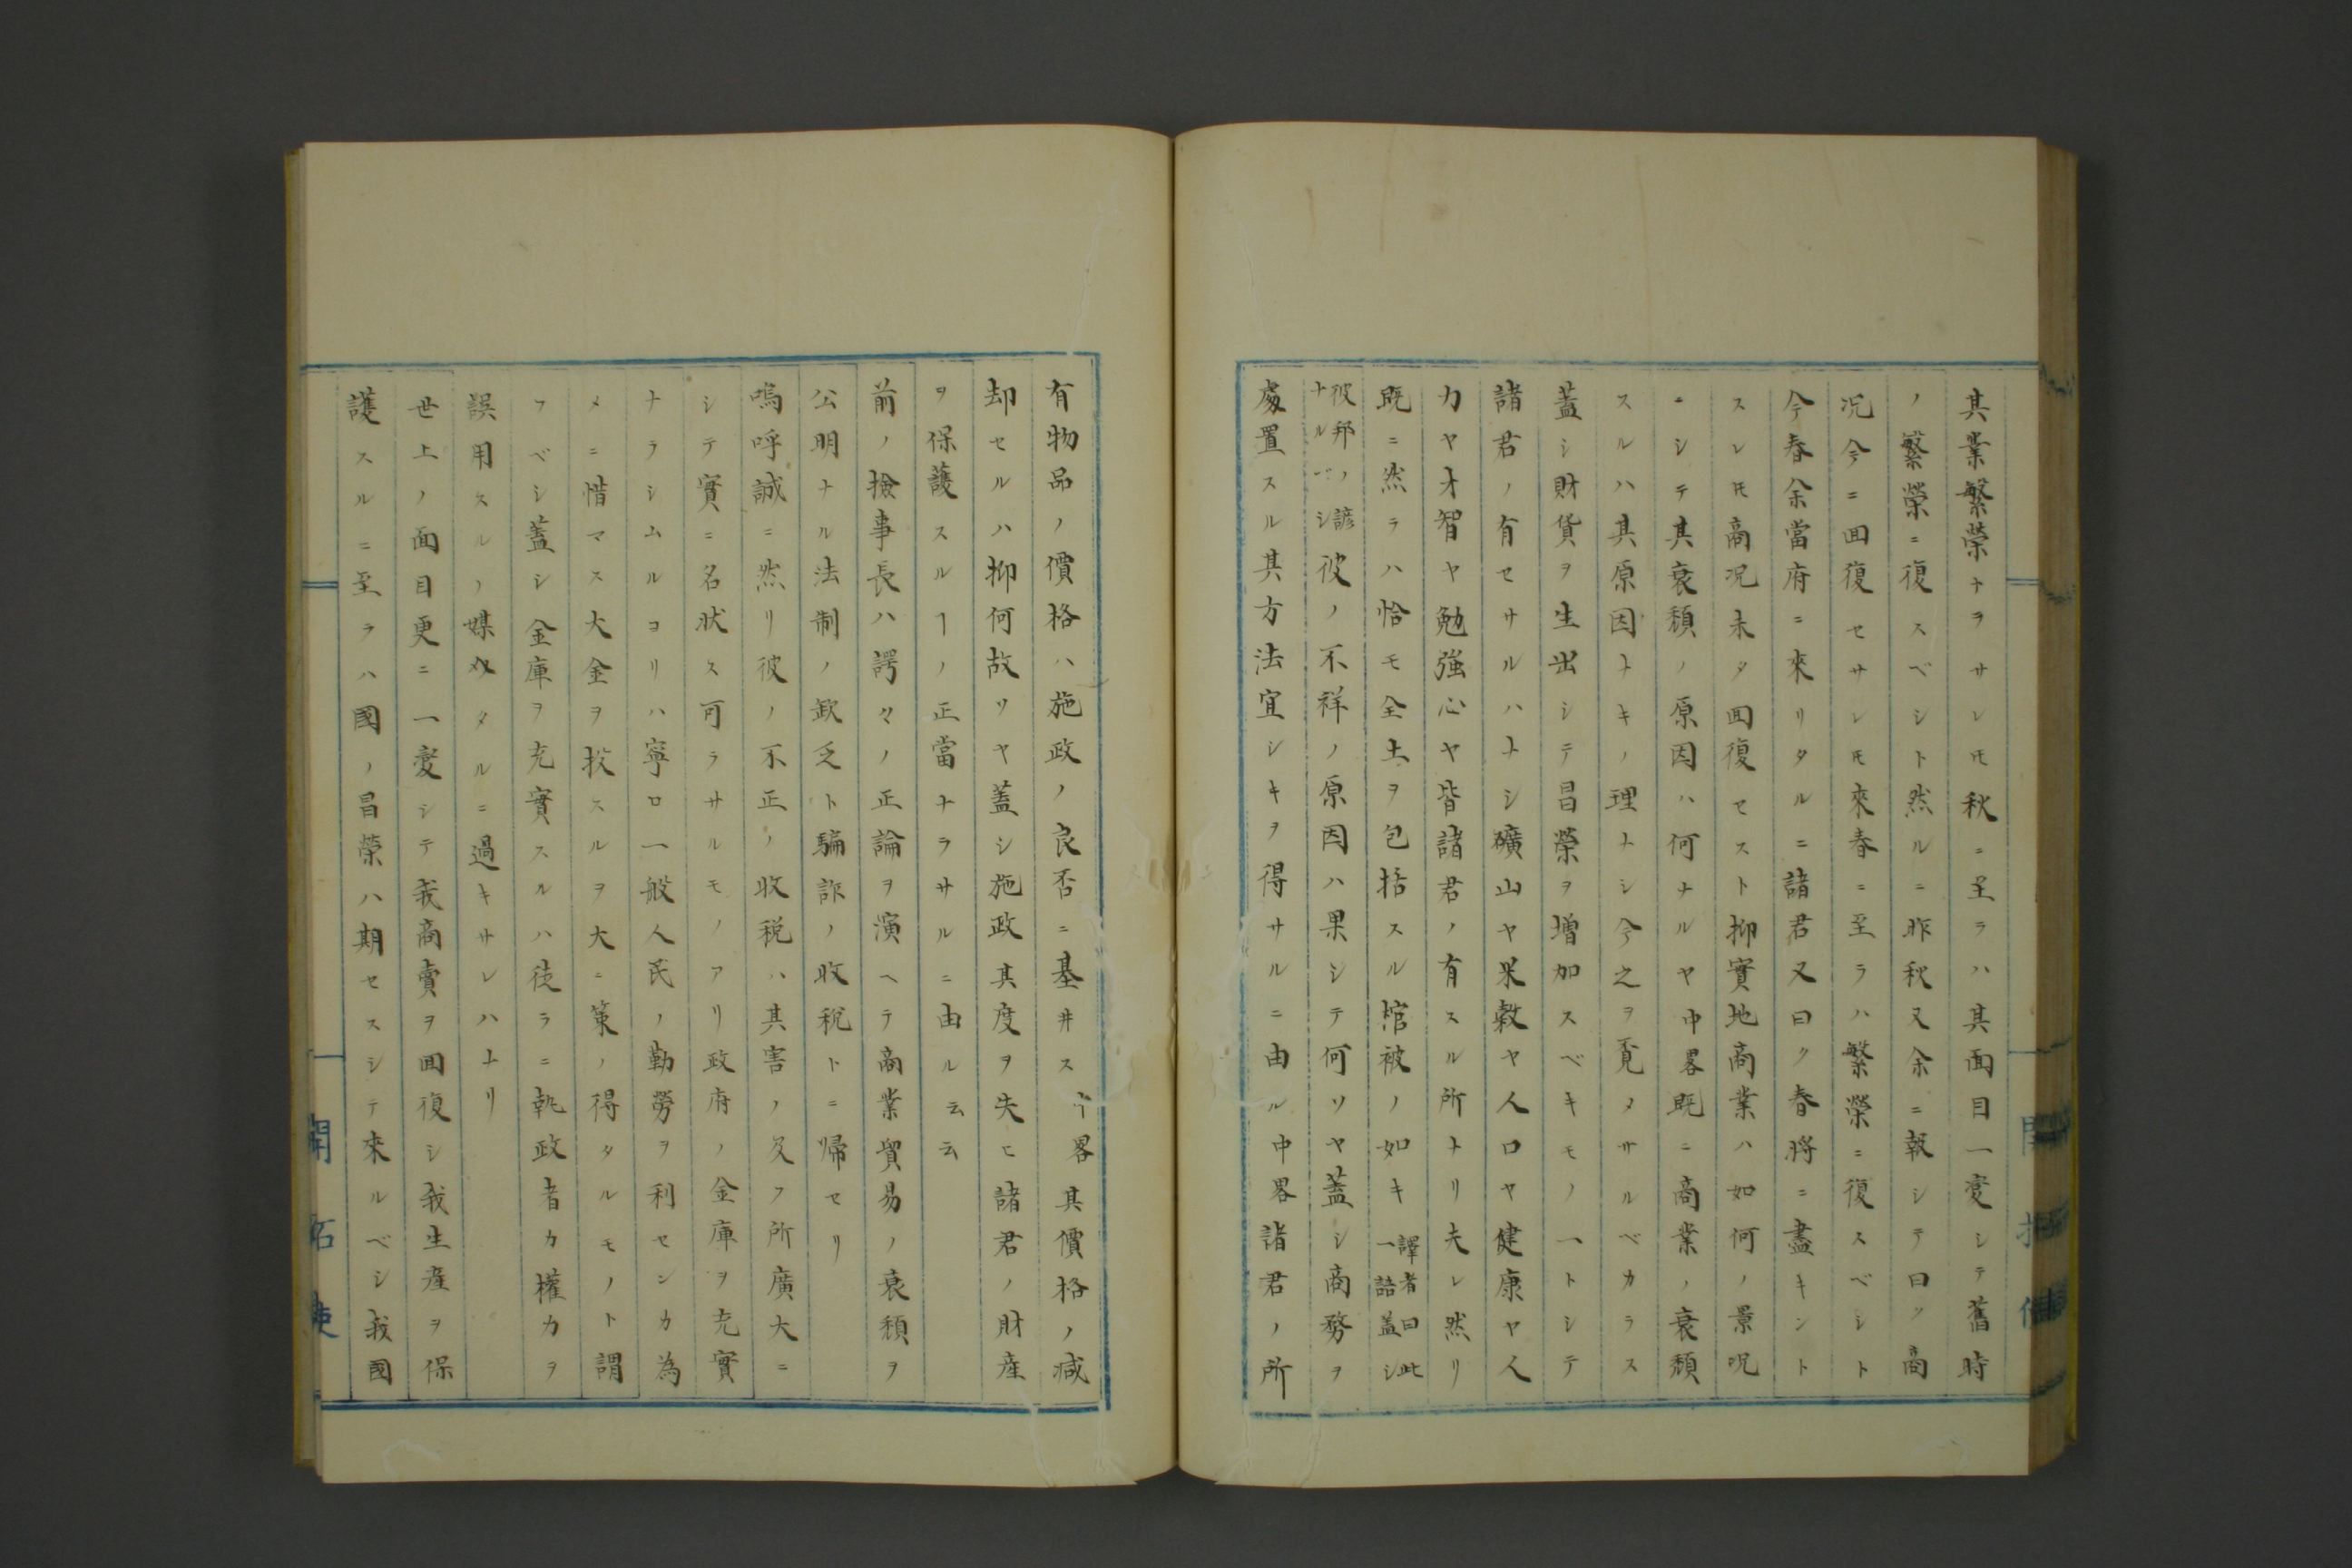 其業繁榮ナラサレ𪜈秋ニ至ラハ其面目一変シテ舊時
ノ繁榮ニ復スベシト然ルニ昨秋又余ニ報シテ曰ク商
况今ニ囬復セサレ𪜈來春ニ至ラハ繁榮ニ復スベシト
今春余當府ニ來リタルニ諸君又曰ク春將ニ盡キントスレ𪜈商况未タ囬復セスト抑實地商業ハ如何ノ景况
ニシテ其衰頽ノ原因ハ何ナルヤ中畧既ニ商業ノ衰頽
スルハ其原因ナキノ理ナシ今之ヲ覓メサルベカラス
蓋シ財貨ヲ生出シテ昌榮ヲ増加スベキモノ一トシテ
諸君ノ有セサルハナシ礦山ヤ米穀ヤ人口ヤ健康ヤ人
力ヤ才智ヤ勉強心ヤ皆諸君ノ有スル所ナリ夫レ然リ
既ニ然ラハ恰モ全土ヲ包括スル棺被ノ如キ譯者曰此一語蓋シ
彼邦ノ諺ナルベシ彼ノ不祥ノ原因ハ果シテ何ソヤ蓋シ商務ヲ
處置スル其方法宜シキヲ得サルニ由ル中畧諸君ノ所
有物品ノ價格ハ施政ノ良否ニ基ヰス中畧其價格ノ减
却セルハ抑何故ソヤ蓋シ施政其度ヲ失ヒ諸君ノ財産
ヲ保護スルヿノ正當ナラサルニ由ル云云
前ノ撿事長ハ諤々ノ正論ヲ演ヘテ商業貿易ノ衰頽ヲ
公明ナル法制ノ欽乏ト騙詐ノ收税トニ帰セリ
嗚呼誠ニ然リ彼ノ不正ノ收税ハ其害ノ及フ所廣大ニ
シテ實ニ名状ス可ラサルモノアリ政府ノ金庫ヲ充實
ナラシムルヨリハ寧ロ一般人民ノ勤勞ヲ利センカ為
メニ惜マス大金ヲ投スルヲ大ニ策ノ得タルモノト謂
フベシ蓋シ金庫ヲ充實スルハ徒ラニ執政者カ權力ヲ
誤用スルノ媒タルニ過キサレハナリ
世上ノ面目更ニ一変シテ我商賣ヲ囬復シ我生産ヲ保
護スルニ至ラハ國ノ昌榮ハ期セスシテ來ルベシ我國
開拓使